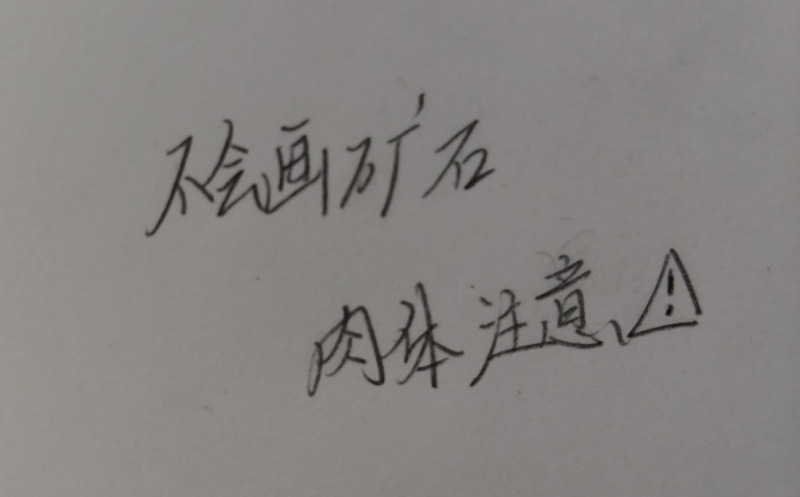 不会画矿石
肉体注意⚠